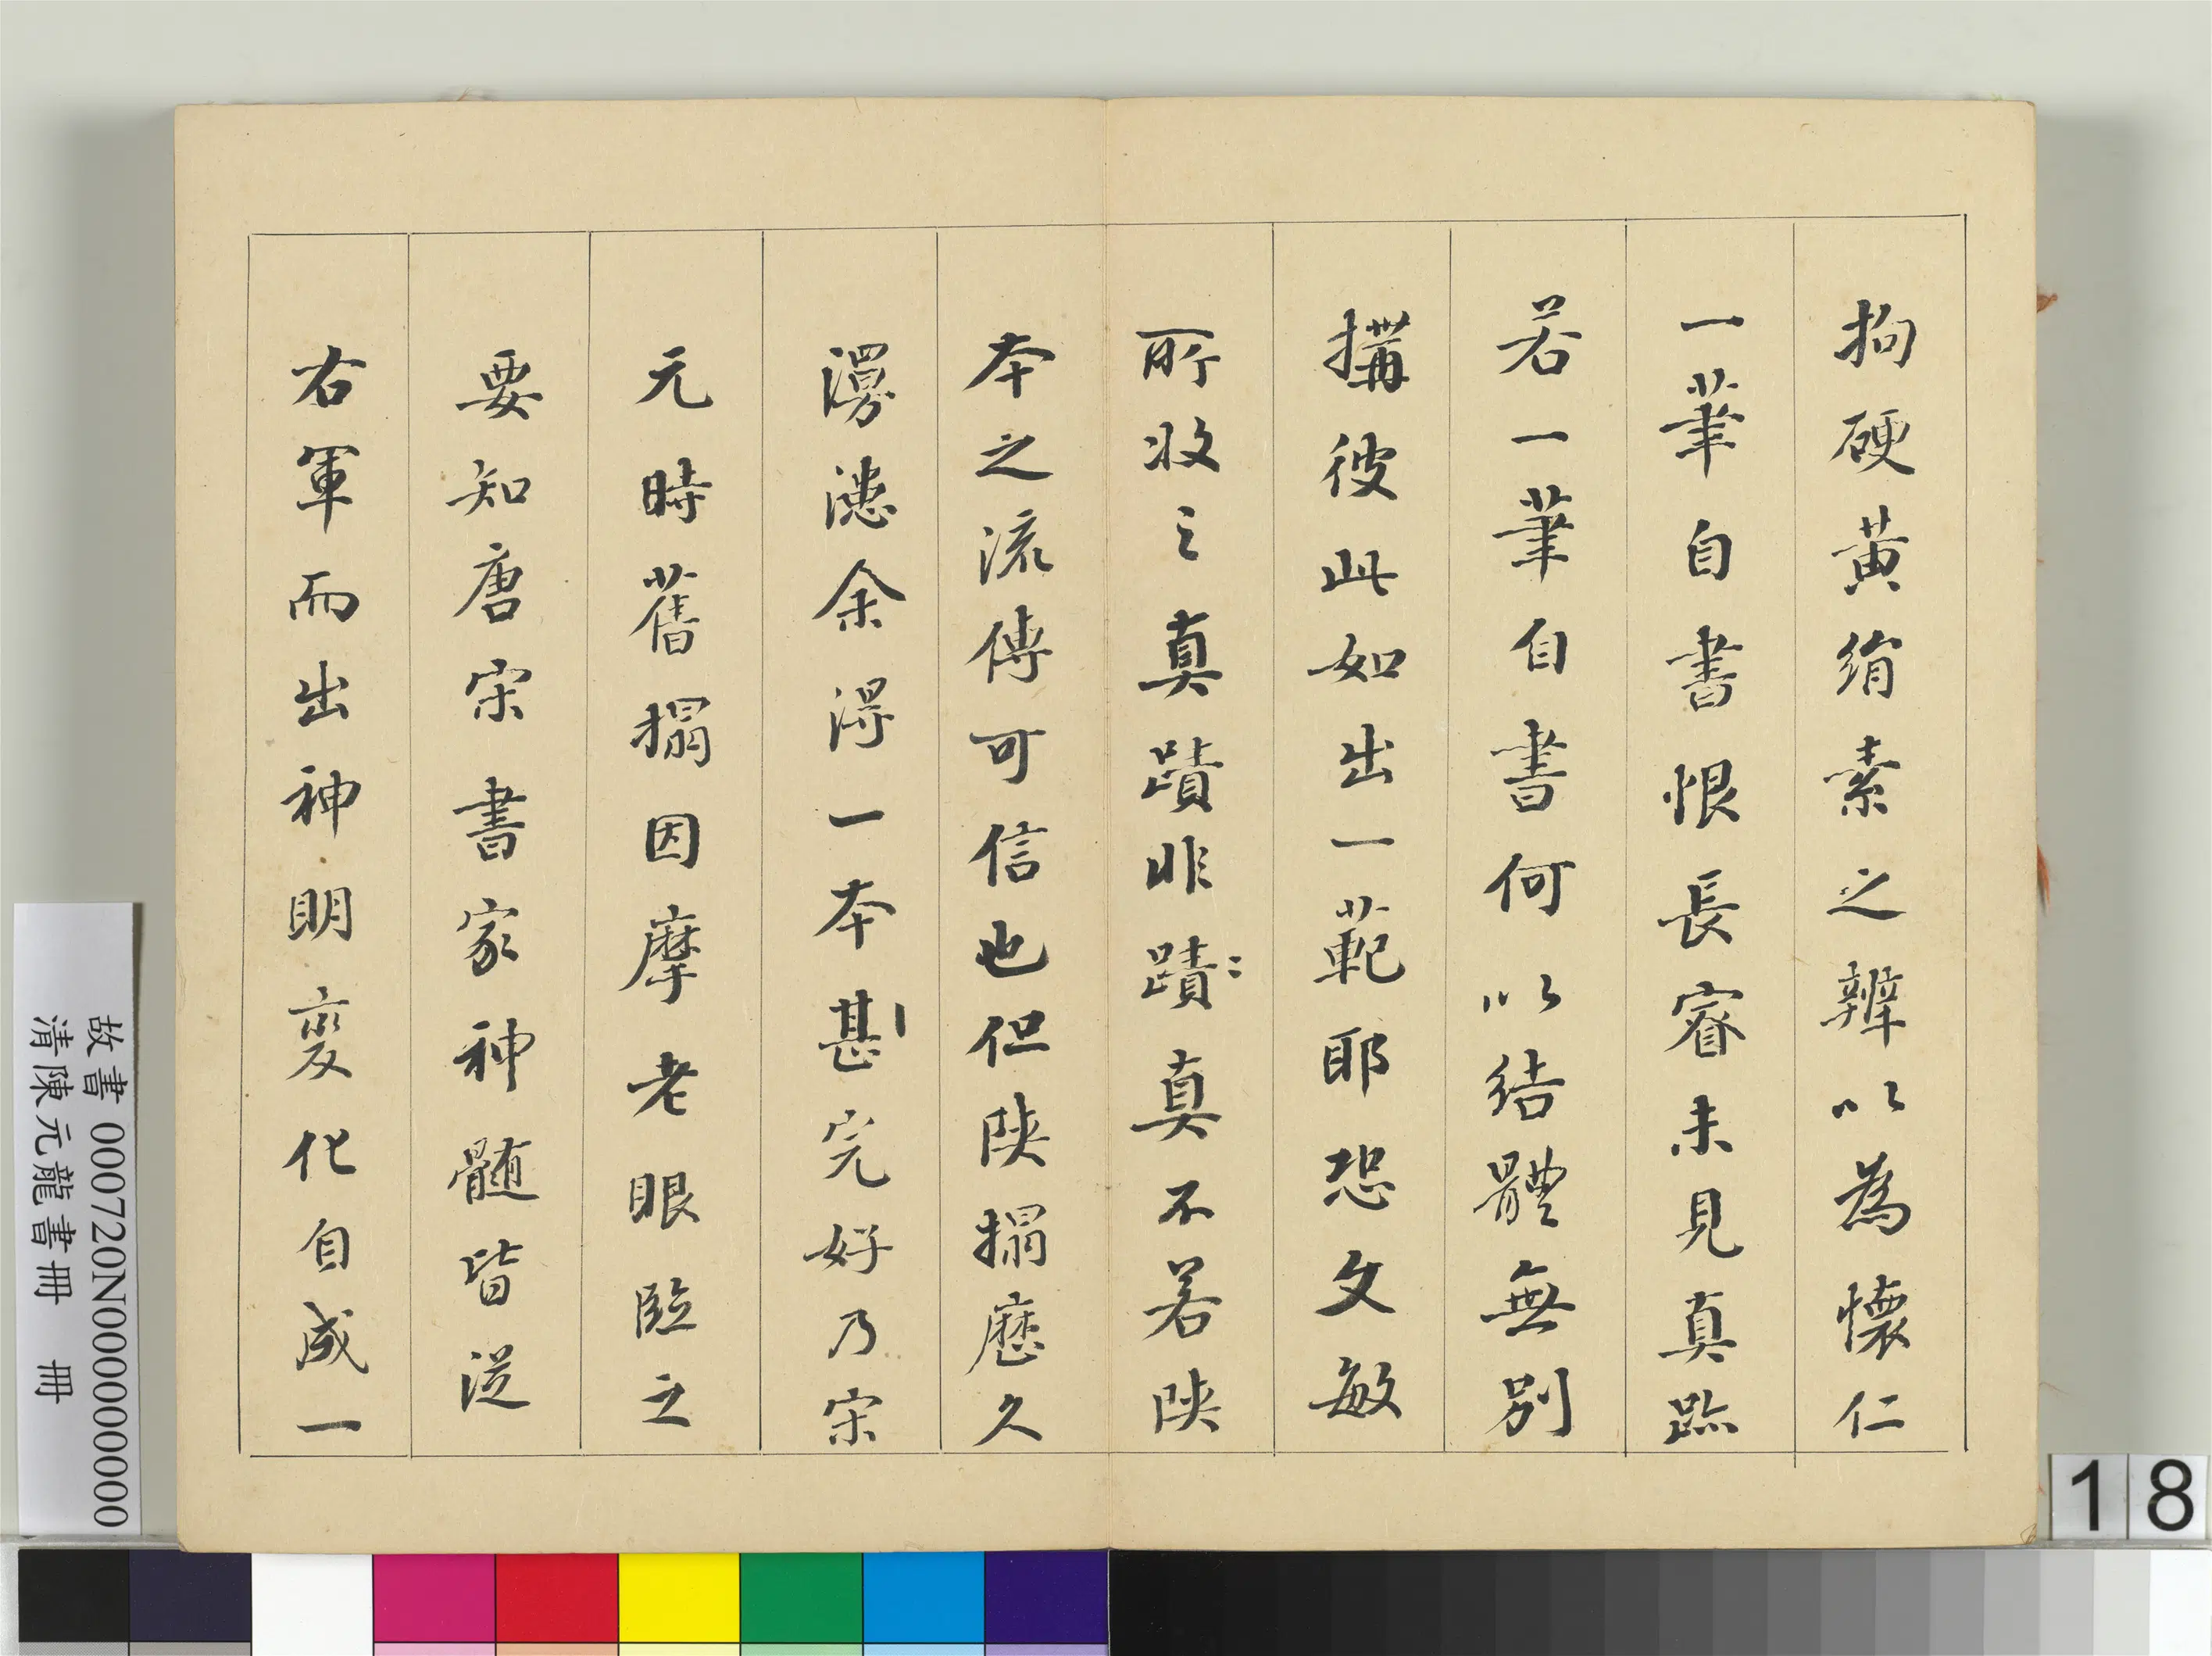 拘硬黃絹素之辨以為懷仁
一筆自書恨長睿未見真跡
若一筆自書何以結體無別
搆彼此如出一範耶恐文敏
所收之真蹟非蹟〻真不若陝
本之流傳可信也但陝搨歷久
漫漶余得一本甚完好乃宋
元時舊搨因摩老眼臨之
要知唐宋書家神髓皆從
右軍而出神明變化自成一
故書 000720N000000000
清陳元龍書冊 冊
18